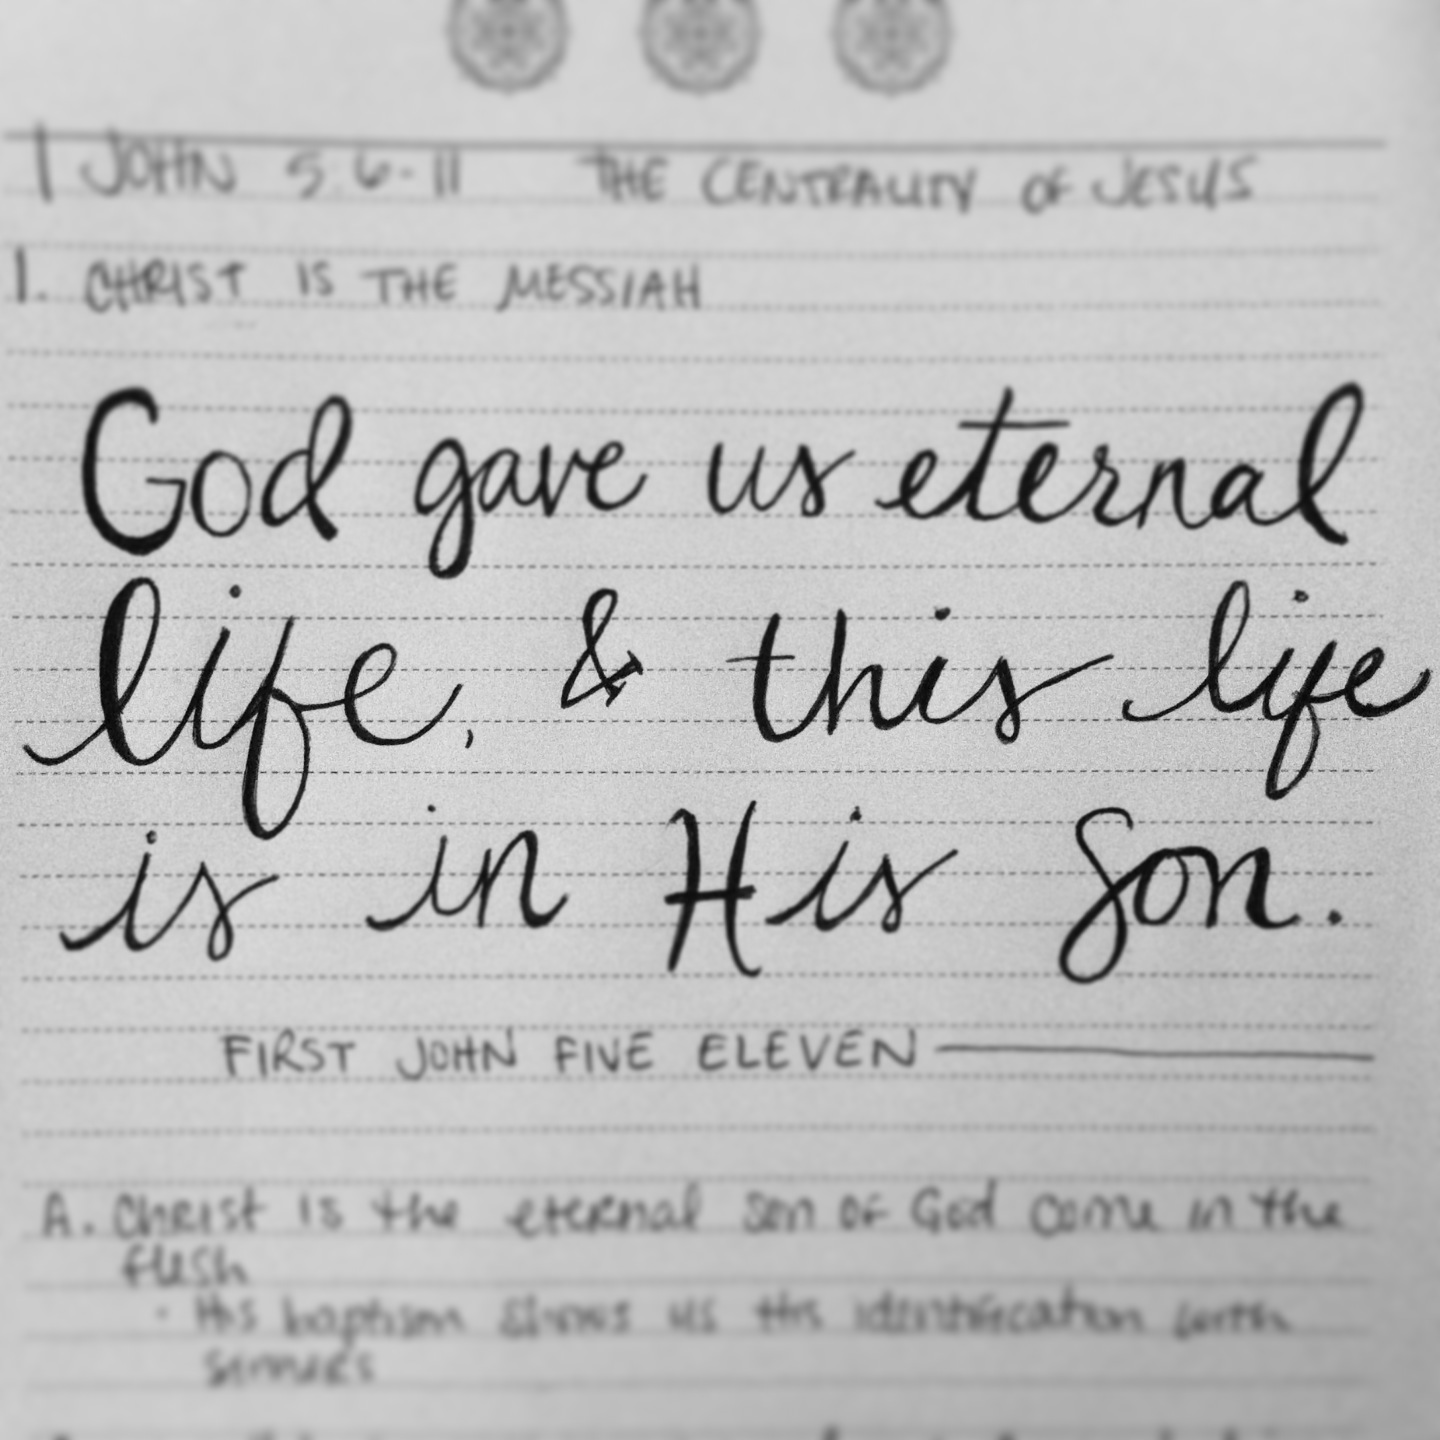 1 JOHN 5:6-11 THE CENTRALITY OF JESUS
1. CHRIST IS THE MESSIAH
God gave us eternal
life, & this life
is in His son.
FIRST JOHN FIVE ELEVEN
A. Christ is the eternal son of God come in the
flesh
· His baptism shows us His identification with
sinners